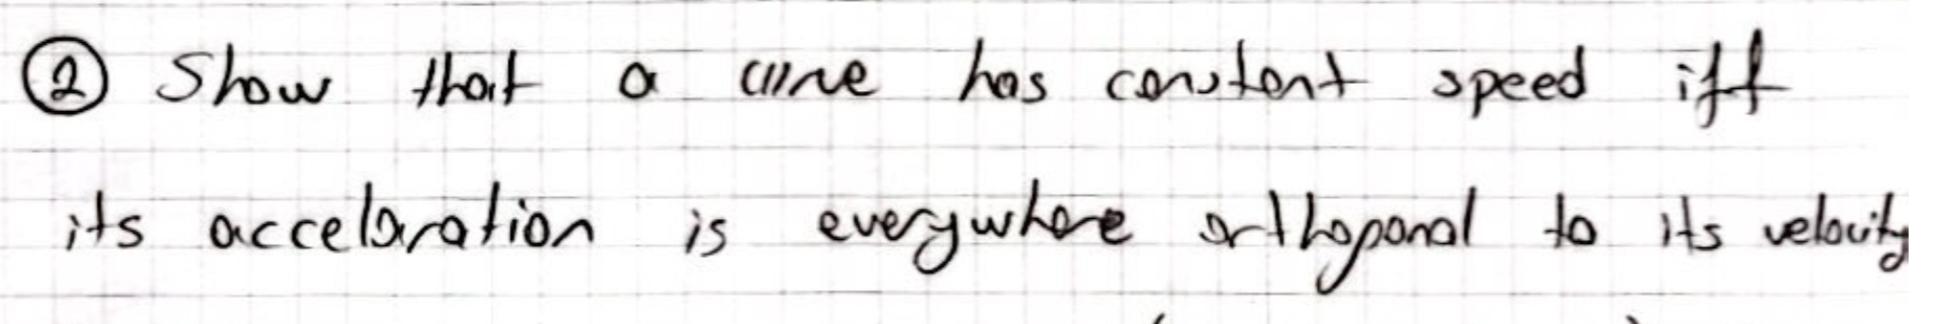 ② Show that a curve has constant speed iff
its acceleration is everywhere orthogonal to its velocity